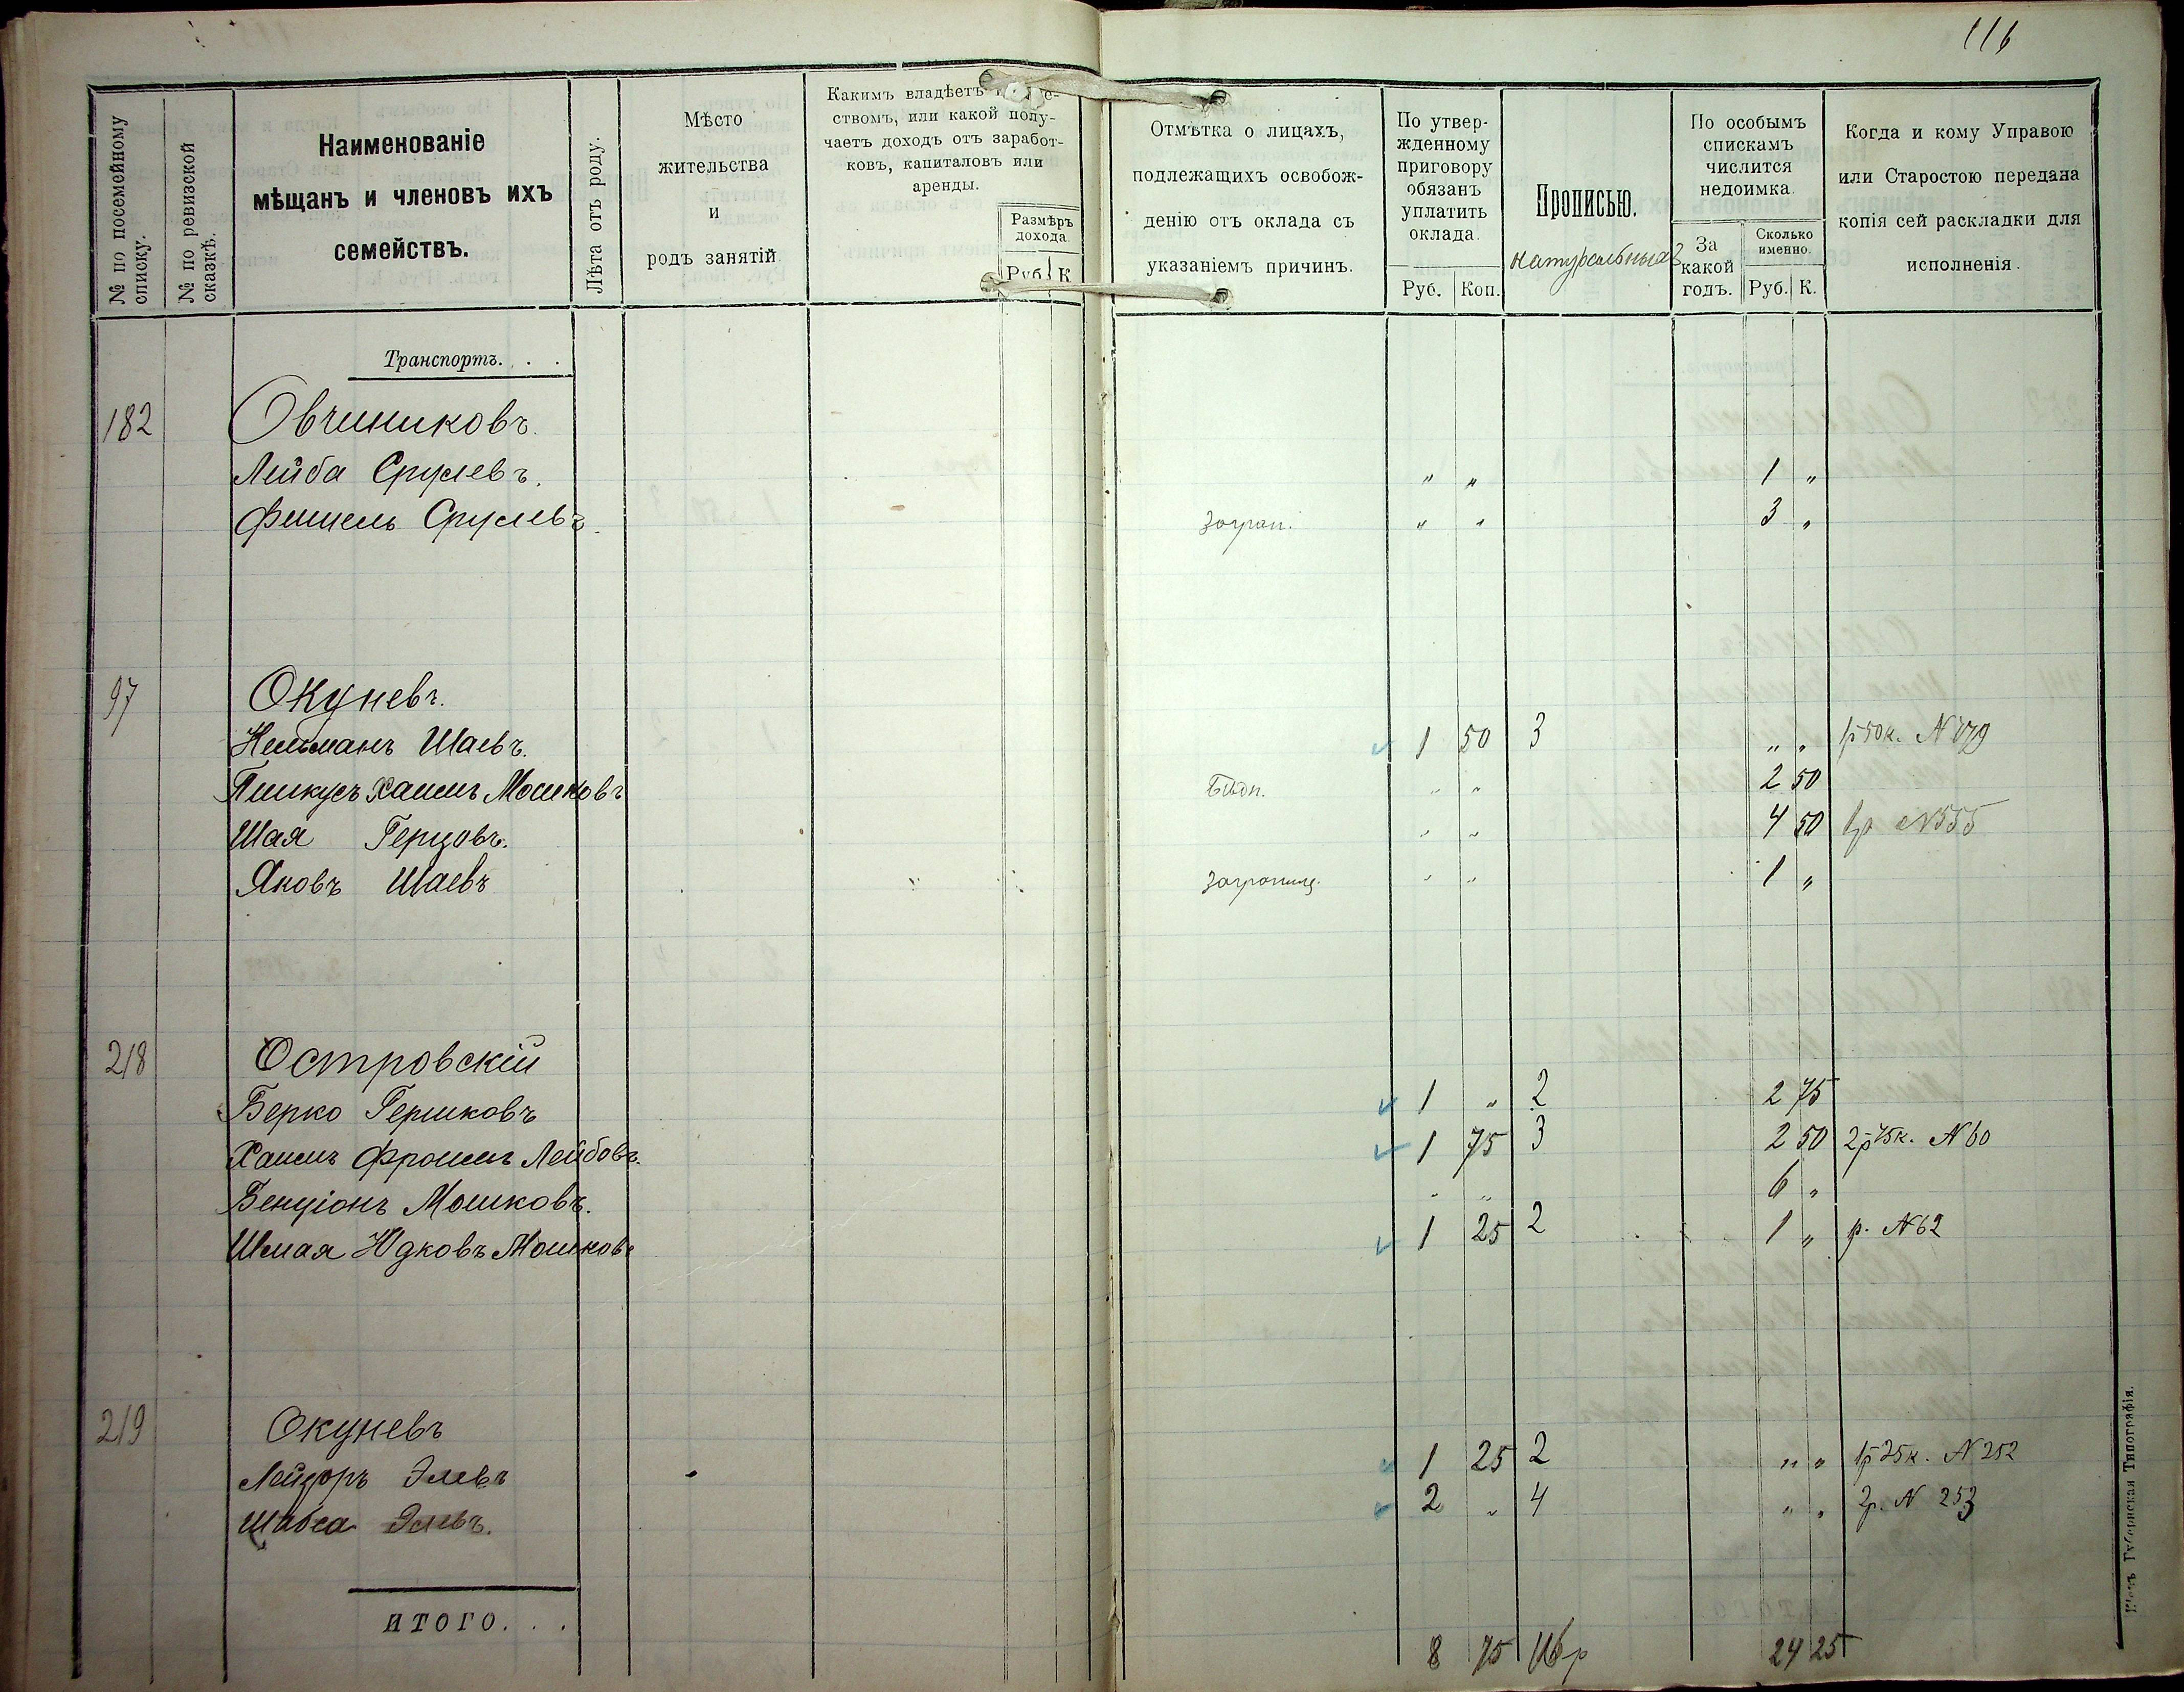 116
№ по посемейному списку.
№ по ревизской сказкѣ.
Наименованіе
мѣщанъ и членовъ ихъ
семействъ.
Лѣта отъ роду.
Мѣсто
жительства
и
родъ занятій.
Какимъ владѣетъ
ствомъ, или какой полу-
чаетъ доходъ отъ заработ-
ковъ, капиталовъ или
аренды.
Размѣръ
дохода.
Руб. К.
Отмѣтка о лицахъ,
подлежащихъ освобож-
денію отъ оклада съ
указаніемъ причинъ.
По утвер-
жденному
приговору
обязанъ
уплатить
оклада.
Руб. Коп.
Прописью.
натуральныхъ
По особымъ
спискамъ
числится
недоимка.
За
какой
годъ.
Сколько
именно.
Руб. К.
Когда и кому Управою
или Старостою передана
копія сей раскладки для
исполненія.
Транспортъ. . .
182 Овчиниковъ.
Лейба Срулевъ. " " 1 "
Фишель Срулевъ. загран. " " 3 "
97 Окуневъ.
Шаевъ. 1 50 3 " " 1р 50к. N 179
Пинкусъ Хаимъ Мошковъ Бѣдн. " " 2 50
Шая Герцовъ. " " 4 50 1р N555
Яковъ Шаевъ заграниц. " " 1 "
218 Островскій
Берко Гершковъ 1 " 2 2 75
Хаимъ Фроимъ Лейбовъ. 1 75 3 2 50 2р 75к. N 60
Бенціонъ Мошковъ. " " 6 "
Шмая Юдковъ Мошковъ 1 25 2 1 " р. N 62
219 Окуневъ
Лейзоръ Элевъ 1 25 2 " " 1р 25к. N 252
Шабса Элевъ. 2 " 4 " " 2р. N 253
ИТОГО. . .
8 75 16р 24 25
Кіевъ Губернская Типографія.